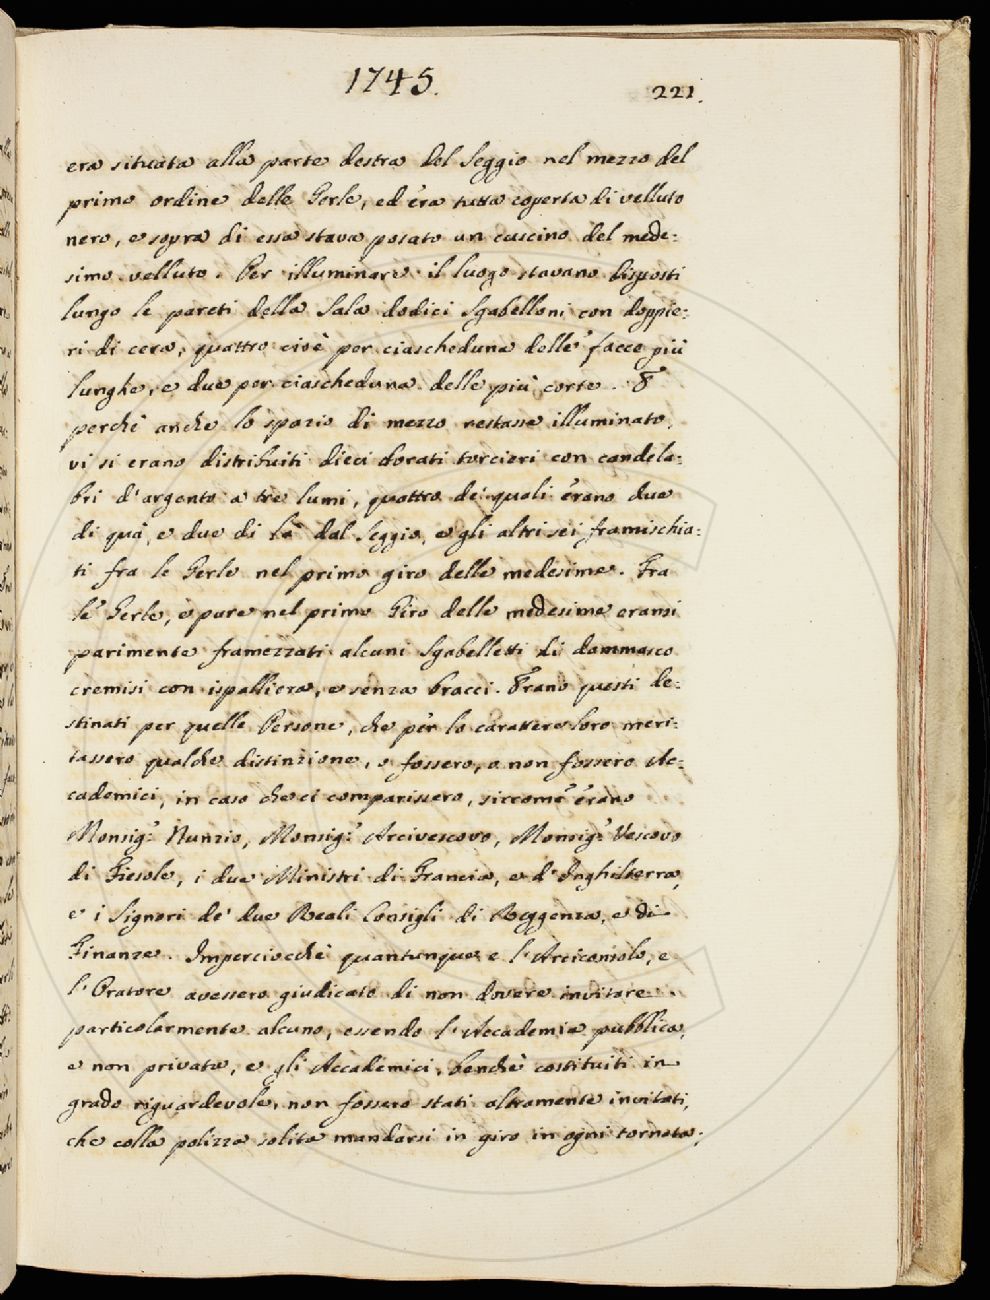 1745.
221.
era situata alla parte destra del Seggio nel mezzo del
primo ordine delle Gerle, ed era tutta coperta di velluto
nero, e sopra di essa stava posato un cuscino del mede:
simo velluto. Per illuminare il luogo stavano disposti
lungo le pareti della Sala dodici Sgabelloni con doppie:
ri di cera, quattro cioè per ciascheduna delle facce più
lunghe, e due per ciascheduna delle più corte. E
perchè anche lo spazio di mezzo restasse illuminato,
vi si erano distribuiti dieci dorati torcieri con candela:
bri d'argento a tre lumi, quattro de' quali erano due
di quà, e due di là dal Seggio, e gli altri sei framischia:
ti fra le Gerle nel primo giro delle medesime. Fra
le Gerle, e pure nel primo Giro delle medesime eransi
parimente framezzati alcuni Sgabelletti di dommasco
cremisi con ispalliera, e senza bracci. Erano questi de:
stinati per quelle Persone, che per lo carattere loro meri:
tassero qualche distinzione, o fossero, o non fossero Ac:
cademici, in caso che ci comparissero, siccome erano
Monsig.r Nunzio, Monsig.r Arcivescovo, Monsig.r Vescovo
di Fiesole, i due Ministri di Francia, e d'Inghilterra,
e i Signori de' due Reali Consigli di Reggenza, e di
Finanze. Imperciocchè quantunque e l'Arciconsolo, e
l'Oratore avessero giudicato di non dovere invitare
particolarmente alcuno, essendo l'Accademia pubblica,
e non privata, e gli Accademici, benchè costituiti in
grado riguardevole, non fossero stati altramente invitati,
che colla polizza solita mandarsi in giro in ogni tornata;